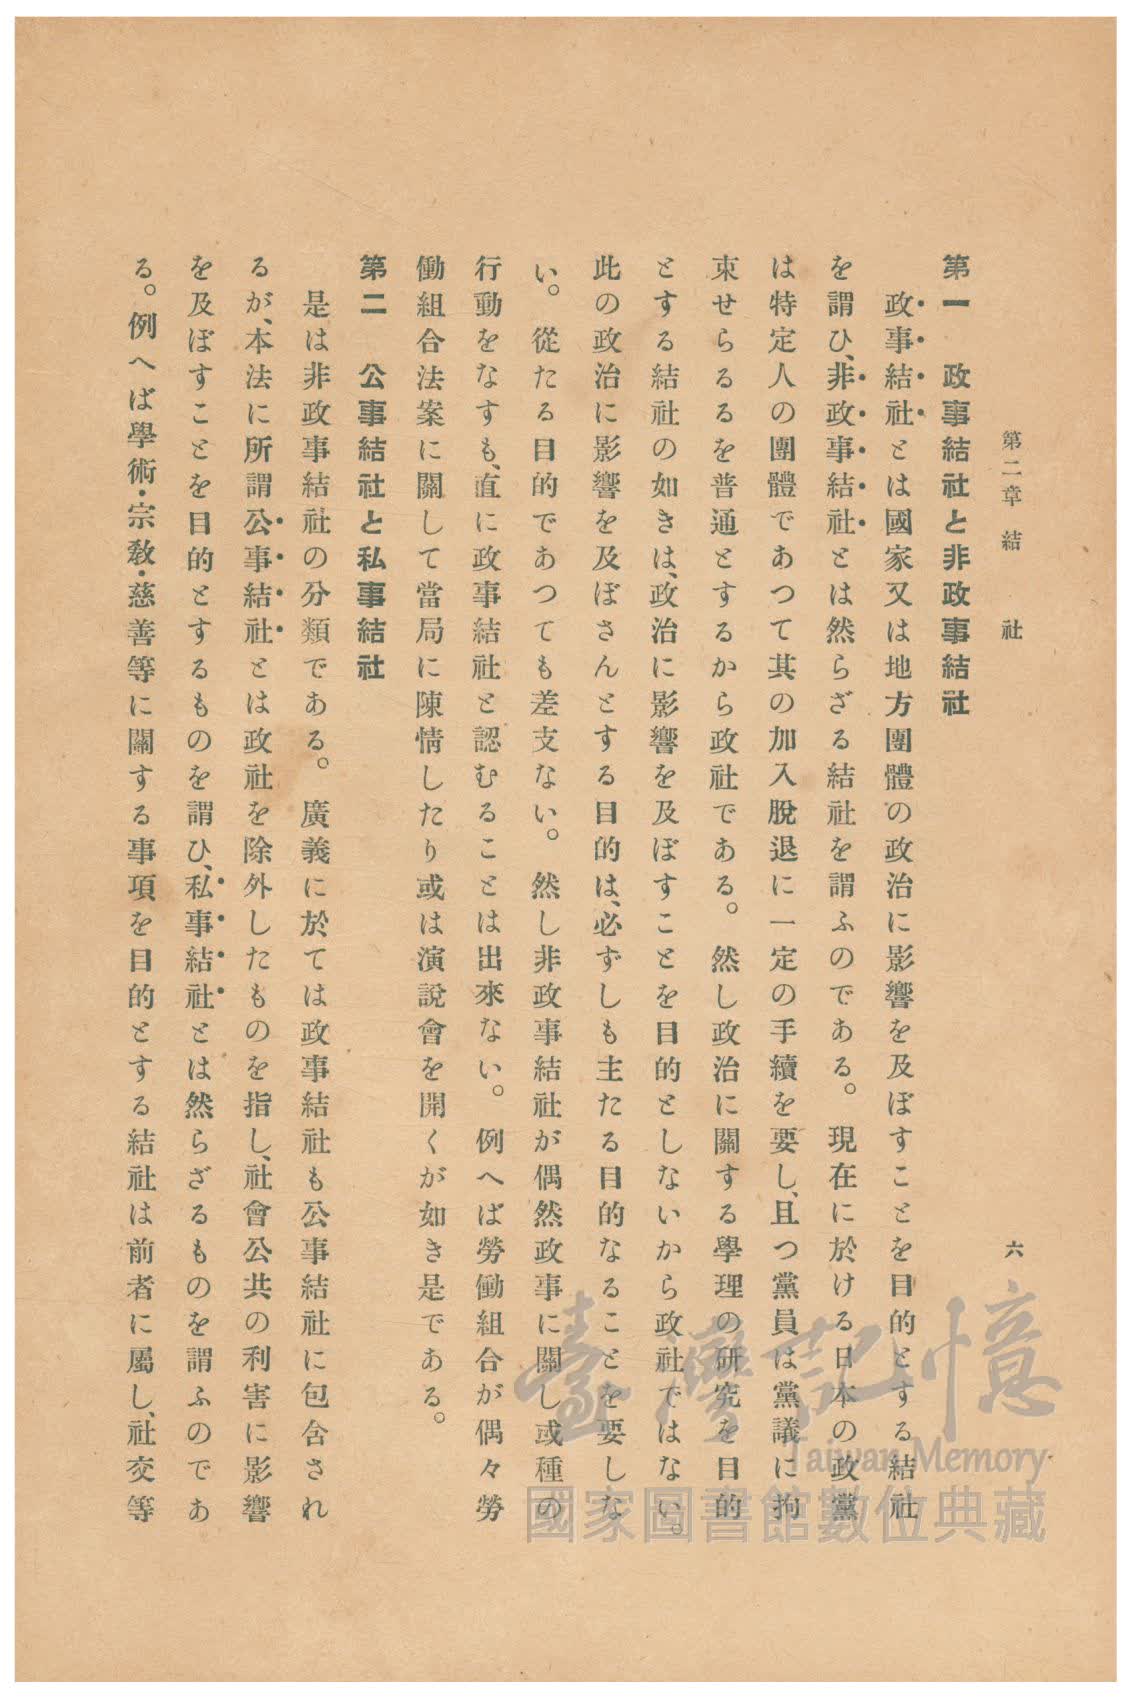 第二章 結 社 六
第一 政事結社と非政事結社
政事結社とは國家又は地方團體の政治に影響を及ぼすことを目的とする結社
を謂ひ、非政事結社とは然らざる結社を謂ふのである。現在に於ける日本の政黨
は特定人の團體であつて其の加入脫退に一定の手續を要し、且つ黨員は黨議に拘
束せらるるを普通とするから政社である。然し政治に關する學理の研究を目的
とする結社の如きは、政治に影響を及ぼすことを目的としないから政社ではない。
此の政治に影響を及ぼさんとする目的は、必ずしも主たる目的なることを要しな
い。從たる目的であつても差支ない。然し非政事結社が偶然政事に關し或種の
行動をなすも、直に政事結社と認むることは出來ない。例へば勞働組合が偶々勞
働組合法案に關して當局に陳情したり或は演說會を開くが如き是である。
第二 公事結社と私事結社
是は非政事結社の分類である。廣義に於ては政事結社も公事結社に包含され
るが、本法に所謂公事結社とは政社を除外したものを指し、社會公共の利害に影響
を及ぼすことを目的とするものを謂ひ、私事結社とは然らざるものを謂ふのであ
る。例へば學術・宗敎・慈善等に關する事項を目的とする結社は前者に屬し、社交等
臺灣記憶
Taiwan Memory
國家圖書館數位典藏